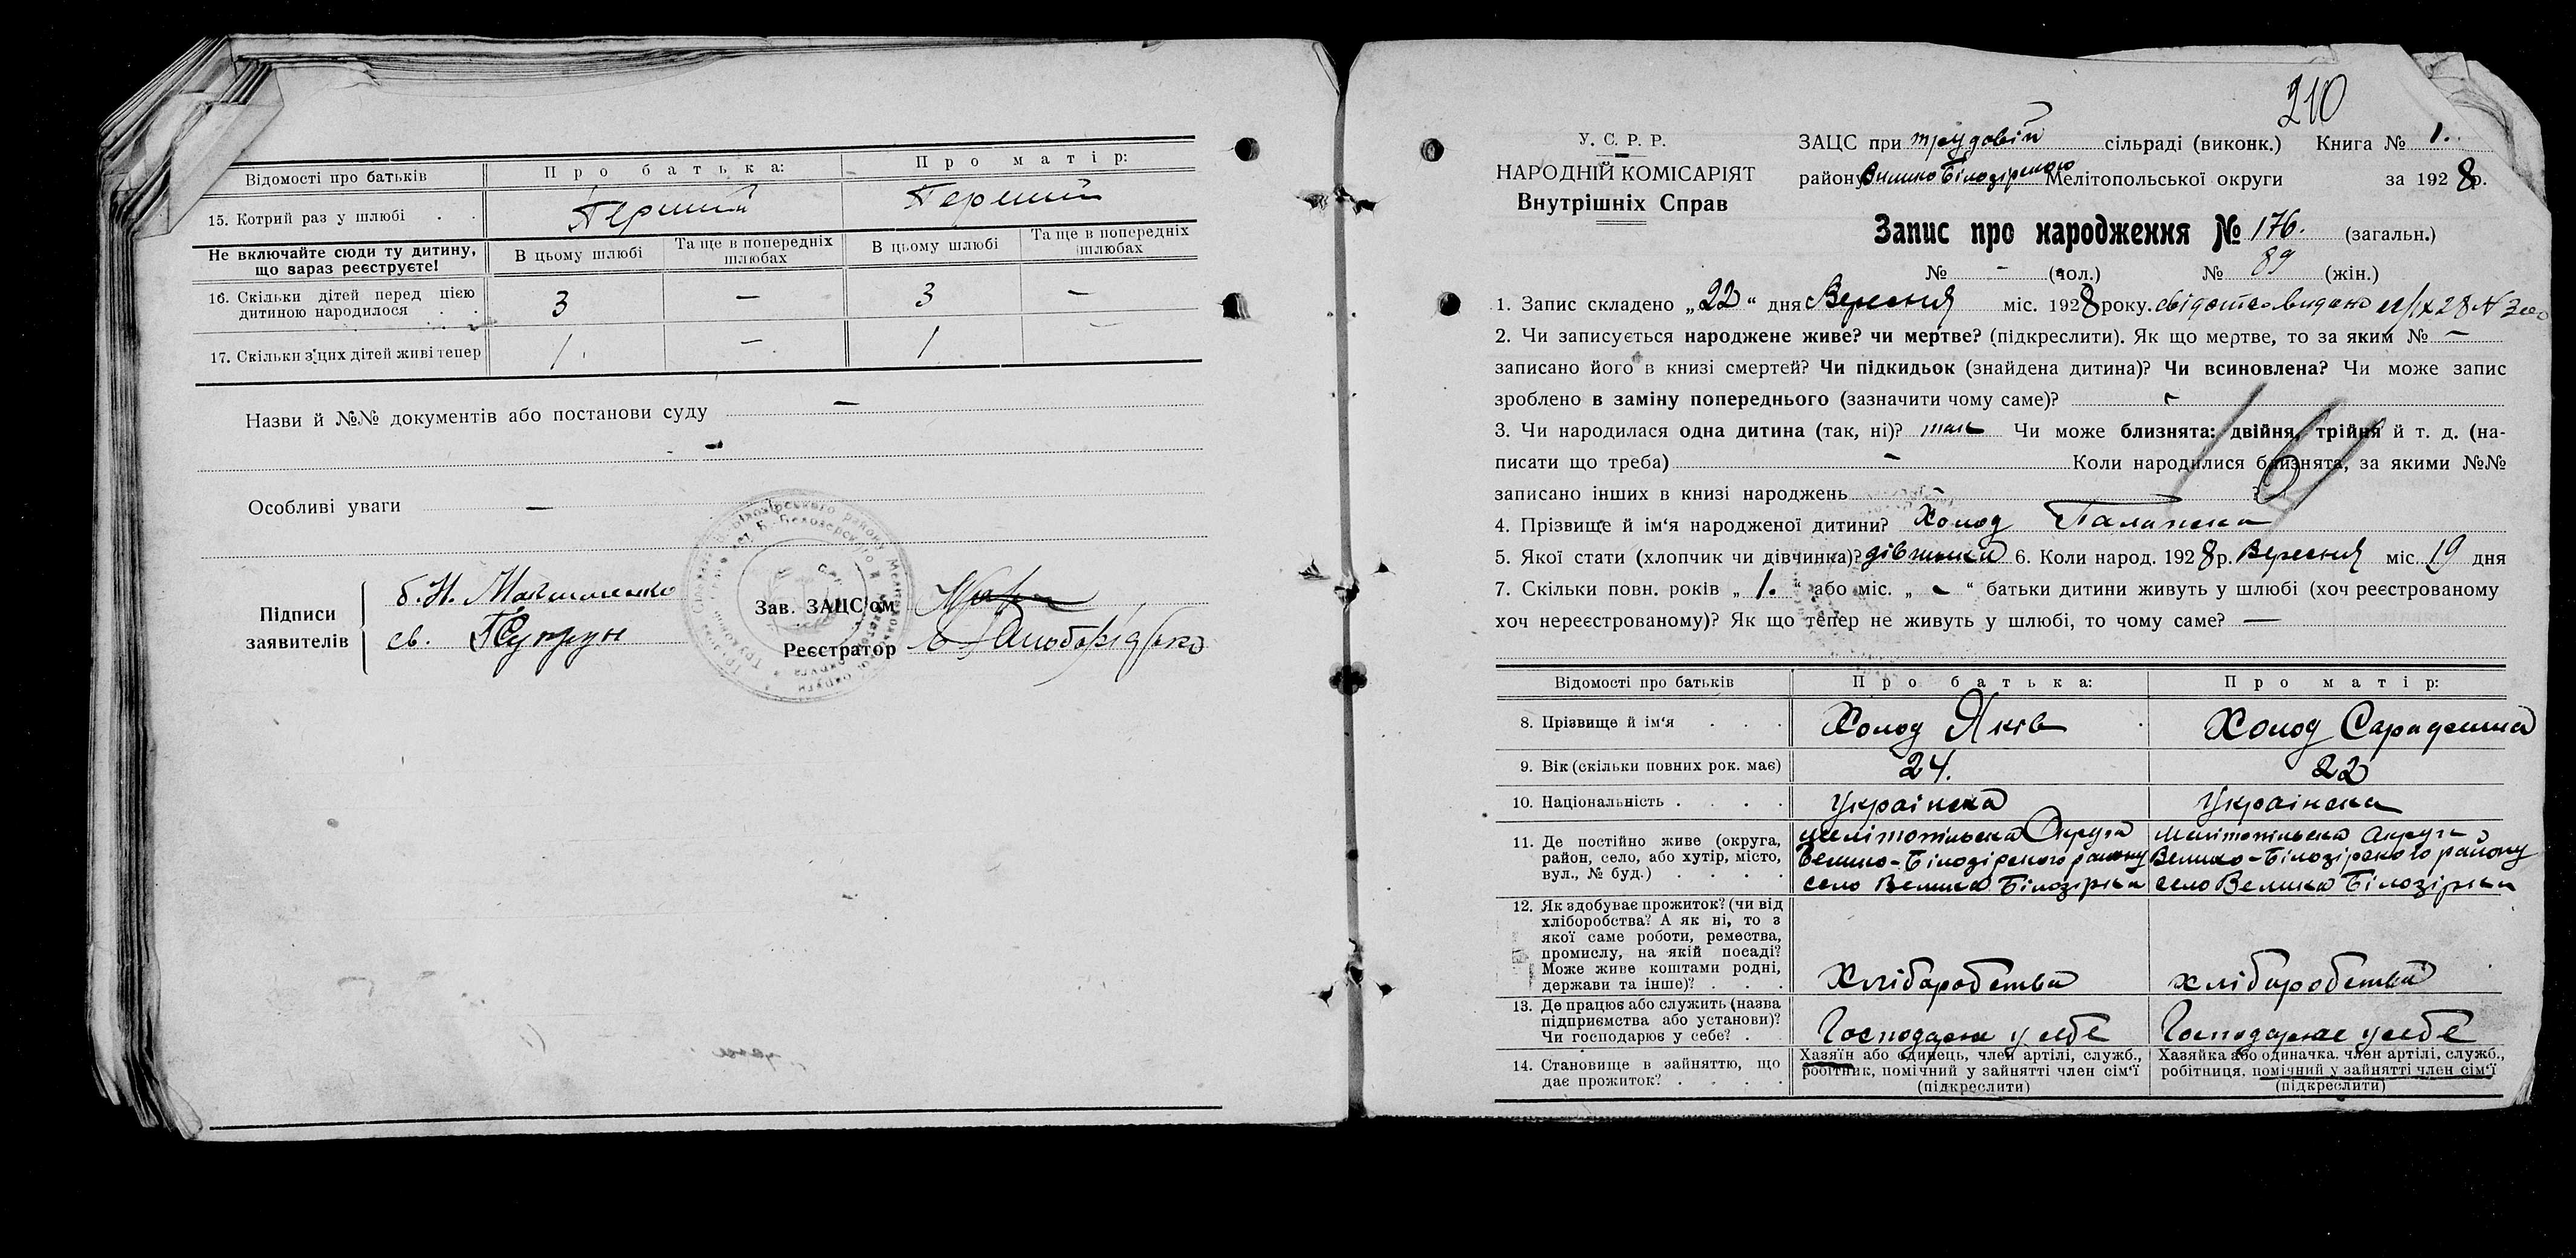 Відомості про батьків Про батька: Про матір:
15. Котрий раз у шлюбі . . Перший Перший
Не включайте сюди ту дитину, що зараз реєструєте! В цьому шлюбі Та ще в попередніх шлюбах В цьому шлюбі Та ще в попередніх шлюбах
16. Скільки дітей перед цією
дитиною народилося . . 3 — 3 —
17. Скільки з цих дітей живі тепер 1. — 1 —
Назви й №№ документів або постанови суду —
—
Особливі уваги —
Підписи
заявителів
св. Супрун
Зав. ЗАЦС'ом
Реєстратор
210
У. С. Р. Р.
НАРОДНІЙ КОМІСАРІЯТ
Внутрішніх Справ
ЗАЦС при трудовій сільраді (виконк.) Книга № 1.
району Велико Білозірському Мелітопольської округи за 1928 р.
Запис про народження № 176. (загальн.)
№ - (чол.) № 89 (жін.)
1. Запис складено „22“ дня Вересня міс. 1928 року. видано
2. Чи записується народжене живе? чи мертве? (підкреслити). Як що мертве, то за яким № —
записано його в книзі смертей? Чи підкидьок (знайдена дитина)? Чи всиновлена? Чи може запис
зроблено в заміну попереднього (зазначити чому саме)? -
3. Чи народилася одна дитина (так, ні)? так Чи може близнята: двійня, трійня й т. д. (на-
писати що треба) - Коли народилися близнята, за якими №№
записано інших в книзі народжень - ?
161
4. Прізвище й ім'я народженої дитини? Холод
5. Якої стати (хлопчик чи дівчинка)? дівчинка 6. Коли народ. 1928 р. Вересня міс. 19 дня
7. Скільки повн. років „1.“ або міс. „-“ батьки дитини живуть у шлюбі (хоч реєстрованому
хоч нереєстрованому)? Як що тепер не живуть у шлюбі, то чому саме? —
Відомості про батьків Про батька: Про матір:
8. Прізвище й ім'я . . . Холод Яків Холод
9. Вік (скільки повних рок. має) 24. 22
10. Національність . . . . Українська Українська
11. Де постійно живе (округа,
район, село, або хутір, місто,
вул., № буд.) . . . .
Мелітопільська Округа
Велико-Білозірського району
село Велика Білозірка
Мелітопільська Округа
Велико-Білозірського району
село Велика Білозірка
12. Як здобуває прожиток? (чи від
хліборобства? А як ні, то з
якої саме роботи, ремества,
промислу, на якій посаді?
Може живе коштами родні,
держави та інше)? . . .
Хліборобства хліборобства
13. Де працює або служить (назва
підприємства або установи)?
Чи господарює у себе? .
Господарює у себе Господарює у себе
14. Становище в зайняттю, що
дає прожиток? . . . .
Хазяїн або одинець, член артілі, служб.,
робітник, помічний у зайнятті член сім'ї
(підкреслити)
Хазяйка або одиначка, член артілі, служб.,
робітниця, помічний у зайнятті член сім'ї
(підкреслити)